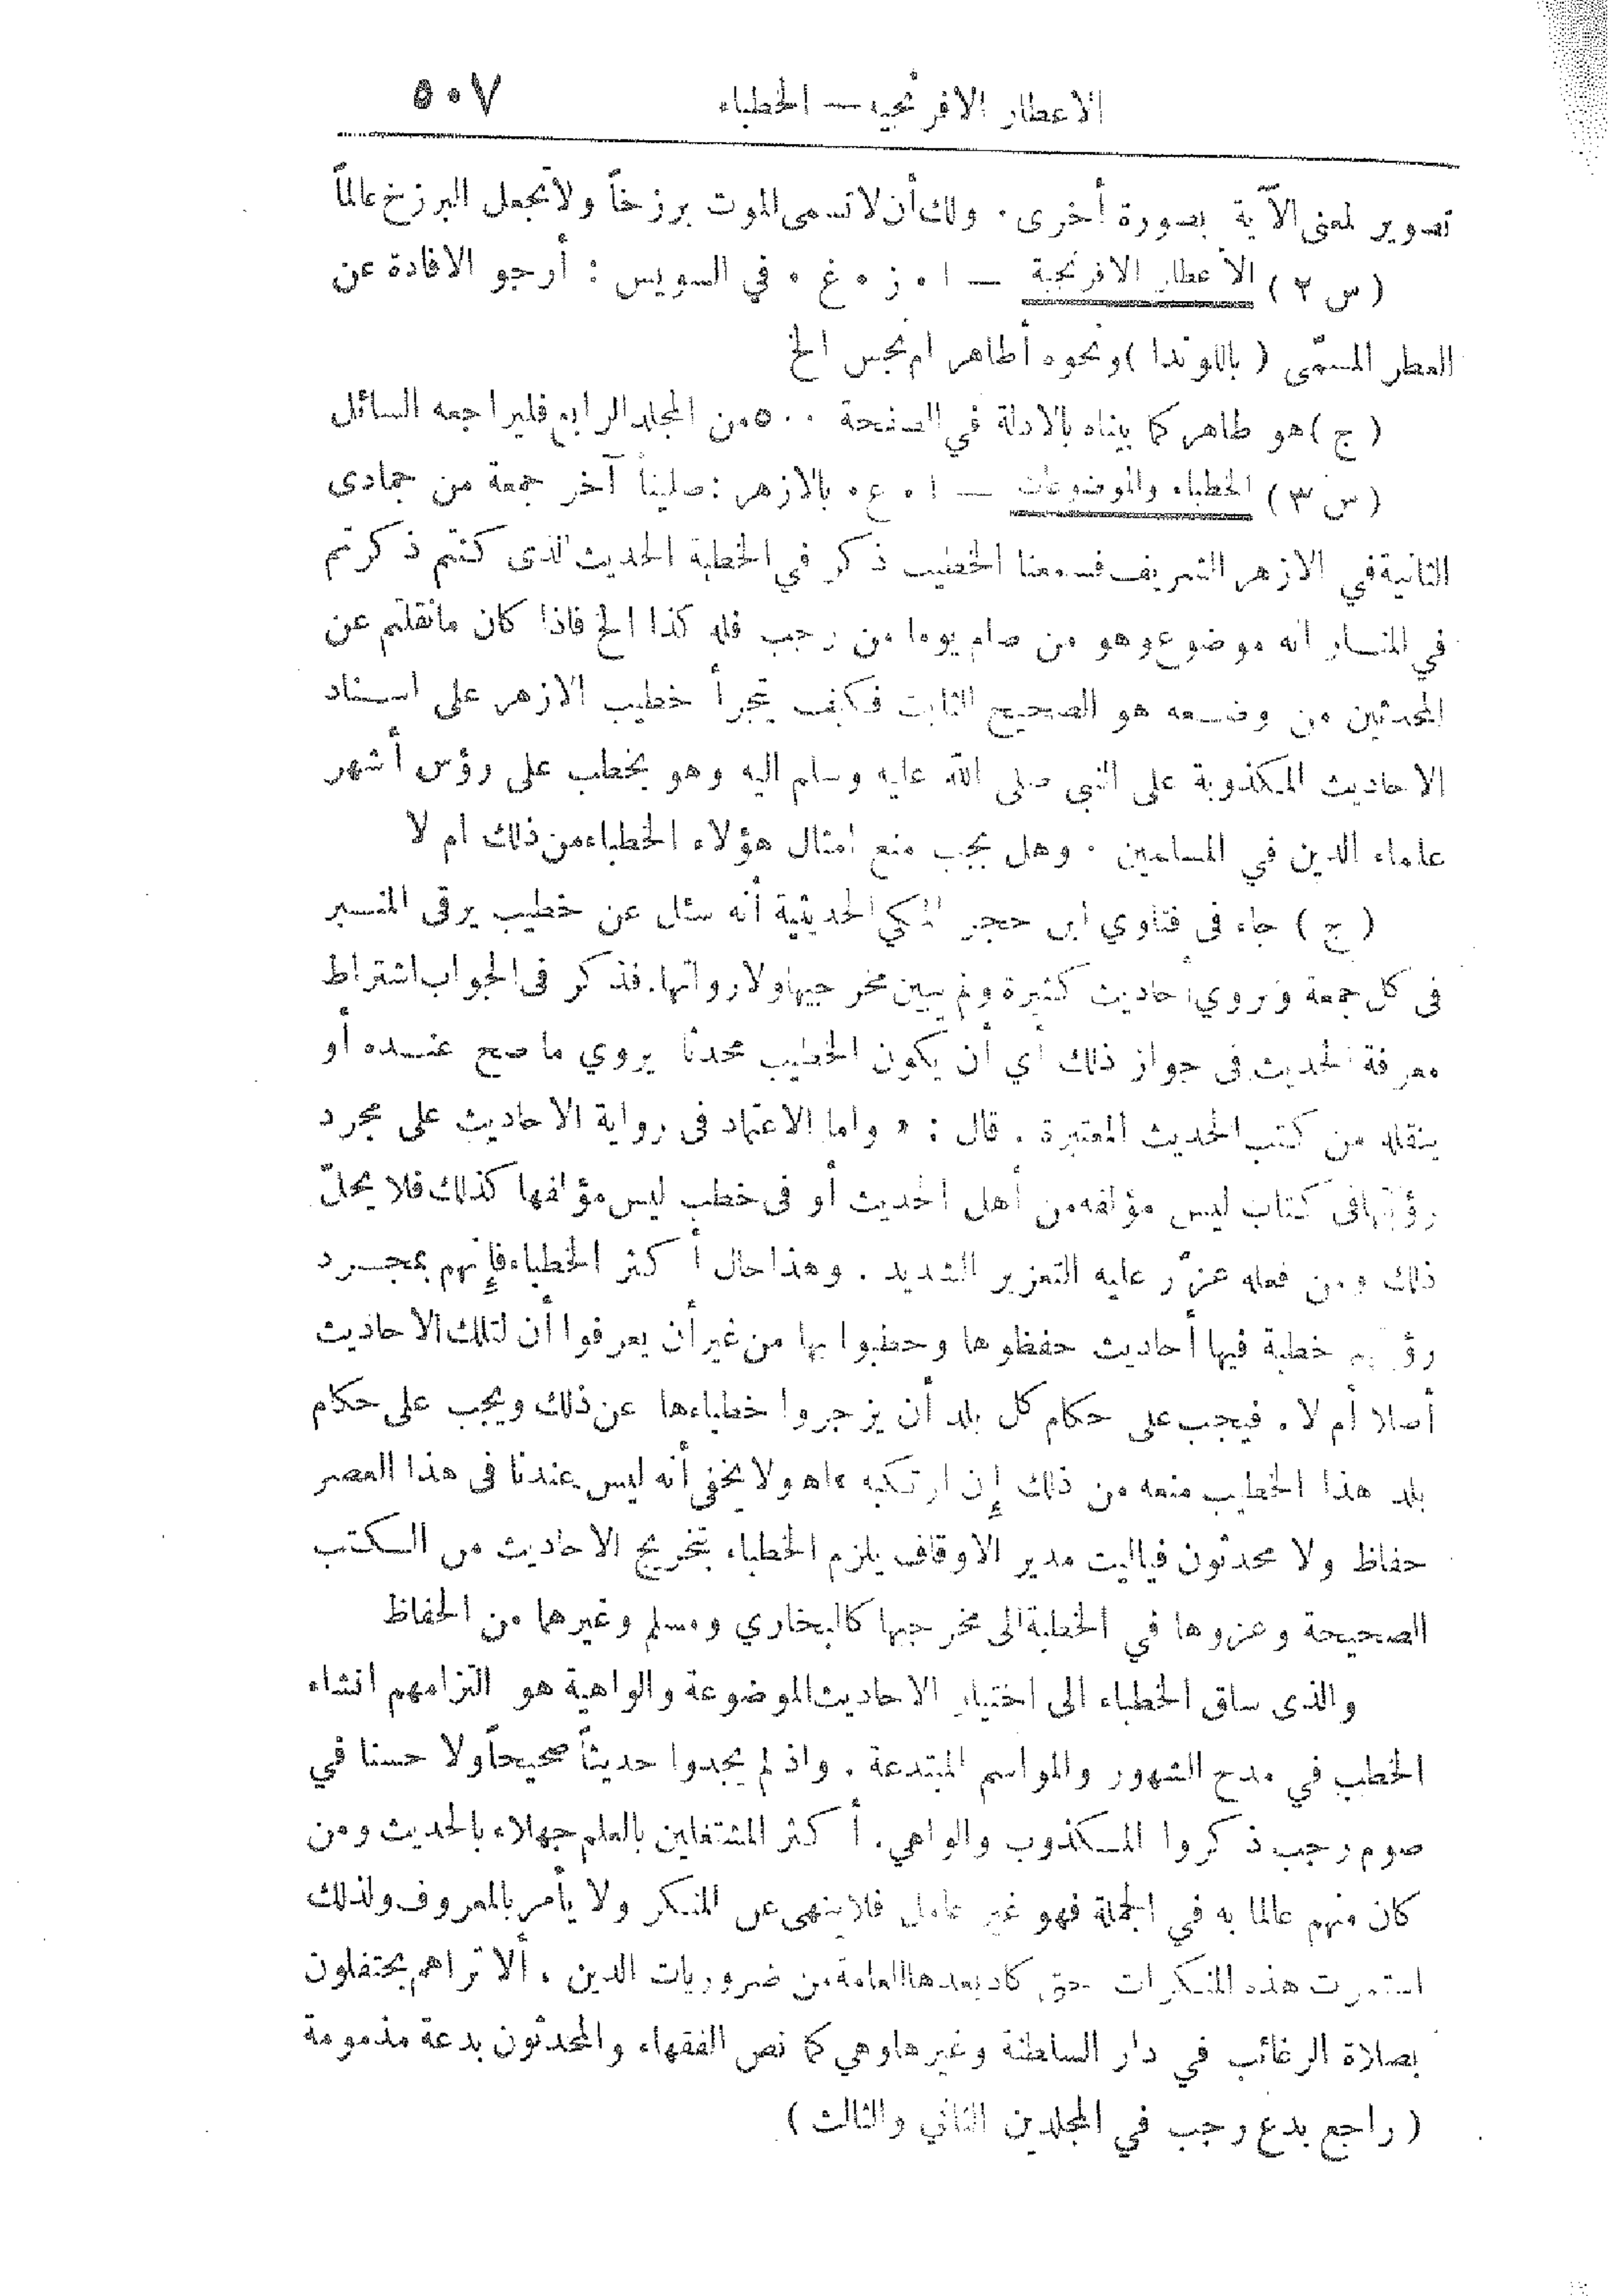 الاعطار الافرنجيه — الخطباء ٥٠٧
تصوير لمعنى الآية بصورة أخرى . ولك أن لا تسمى الموت برزخاً ولا تجعل البرزخ عالماً
( س ٢ ) الأعطار الافرنجية — ا . ز . غ . في السويس : أرجو الافادة عن
العطر المسمّى ( باللوندا ) ونحوه أطاهر ام نجس الخ
( ج ) هو طاهر كما بيناه بالادلة في الصفحة ٥٠٠ من المجلد الرابع فليراجعه السائل
( س ٣ ) الخطباء والموضوعات — ا . ع . بالازهر : صلينا آخر جمعة من جمادى
الثانية في الازهر الشريف فسمعنا الخطيب ذكر في الخطبة الحديث الذى كنتم ذكرتم
في المنار انه موضوع وهو من صام يوما من رجب فله كذا الخ فاذا كان ما نقلتم عن
المحدثين من وضعه هو الصحيح الثابت فكيف يتجرأ خطيب الازهر على اسناد
الاحاديث المكذوبة على النبي صلى الله عليه وسلم اليه وهو يخطب على رؤس أشهر
علماء الدين في المسلمين . وهل يجب منع امثال هؤلاء الخطباء من ذلك ام لا
( ج ) جاء فى فتاوي ابن حجر المكي الحديثية أنه سئل عن خطيب يرقى المنبر
فى كل جمعة ويروي أحاديث كثيرة ولم يبين مخرجيها ولا رواتها . فذكر فى الجواب اشتراط
معرفة الحديث فى جواز ذلك أي أن يكون الخطيب محدثا يروي ما صح عنده أو
ينقله من كتب الحديث المعتبرة . قال : « واما الاعتماد فى رواية الاحاديث على مجرد
رؤيتها فى كتاب ليس مؤلفه من أهل الحديث أو فى خطب ليس مؤلفها كذلك فلا يحلّ
ذلك ومن فعله عزّر عليه التعزير الشديد . وهذا حال أكثر الخطباء فإنهم بمجرد
رؤيتهم خطبة فيها أحاديث حفظوها وخطبوا بها من غير أن يعرفوا أن لتلك الاحاديث
أصلا أم لا . فيجب على حكام كل بلد أن يزجروا خطباءها عن ذلك ويجب على حكام
بلد هذا الخطيب منعه من ذلك إن ارتكبه » اهـ ولا يخفى أنه ليس عندنا فى هذا العصر
حفاظ ولا محدثون فياليت مدير الاوقاف يلزم الخطباء بتخريج الاحاديث من الكتب
الصحيحة وعزوها في الخطبة الى مخرجيها كالبخاري ومسلم وغيرهما من الحفاظ
والذى ساق الخطباء الى اختيار الاحاديث الموضوعة والواهية هو التزامهم انشاء
الخطب في مدح الشهور والمواسم المبتدعة . واذ لم يجدوا حديثاً صحيحاً ولا حسنا في
صوم رجب ذكروا المكذوب والواهي . أكثر المشتغلين بالعلم جهلاء بالحديث ومن
كان منهم عالما به في الجملة فهو غير عامل فلا ينهى عن المنكر ولا يأمر بالمعروف ولذلك
استمرت هذه المنكرات حتى كاد يعدها العامة من ضروريات الدين . ألا تراهم يحتفلون
بصلاة الرغائب في دار السلطنة وغيرها وهي كما نص الفقهاء والمحدثون بدعة مذمومة
( راجع بدع رجب في المجلدين الثاني والثالث )